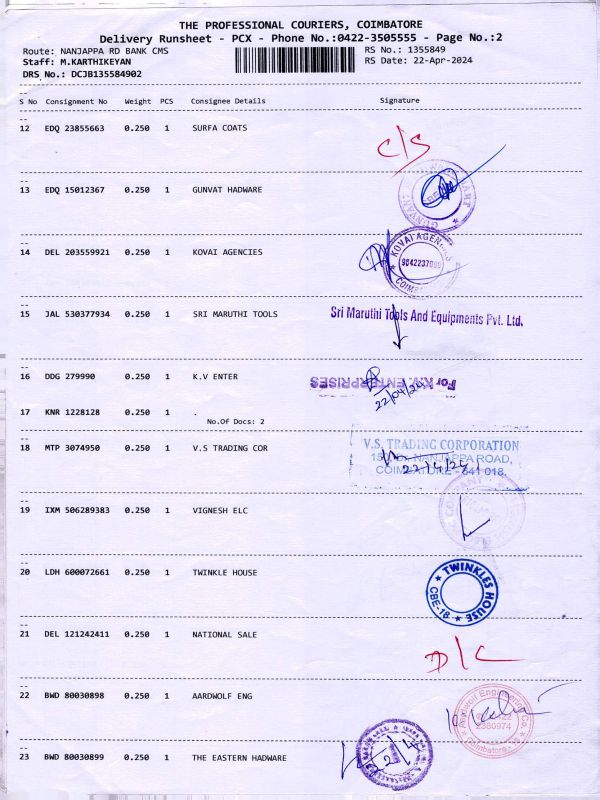 THE PROFESSIONAL COURIERS, COIMBATORE
Delivery Runsheet - PCX - Phone No.:0422-3505555 - Page No.:2
Route: NANJAPPA RD BANK CMS RS No.: 1355849
Staff: M.KARTHIKEYAN RS Date: 22-Apr-2024
DRS No.: DCJB135584902
S No Consignment No Weight PCS Consignee Details Signature
12 EDQ 23855663 0.250 1 SURFA COATS
C/S
13 EDQ 15012367 0.250 1 GUNVAT HADWARE
14 DEL 203559921 0.250 1 KOVAI AGENCIES
KOVAI AGENCIES
15 JAL 530377934 0.250 1 SRI MARUTHI TOOLS
Sri Maruthi Tools And Equipments Pvt. Ltd.
16 DDG 279990 0.250 1 K.V ENTER
For K.V. ENTERPRISES
22/04/24
17 KNR 1228128 0.250 1 .
No.Of Docs: 2
18 MTP 3074950 0.250 1 V.S TRADING COR
V.S. TRADING CORPORATION
NANJAPPA ROAD,
COIMBATORE - 641 018.
22/4/24
19 IXM 506289383 0.250 1 VIGNESH ELC
20 LDH 600072661 0.250 1 TWINKLE HOUSE
TWINKLES HOUSE
CBE-18
21 DEL 121242411 0.250 1 NATIONAL SALE
D/C
22 BWD 80030898 0.250 1 AARDWOLF ENG
Aardwolf Engineering Co.
2380974
Coimbatore
23 BWD 80030899 0.250 1 THE EASTERN HADWARE